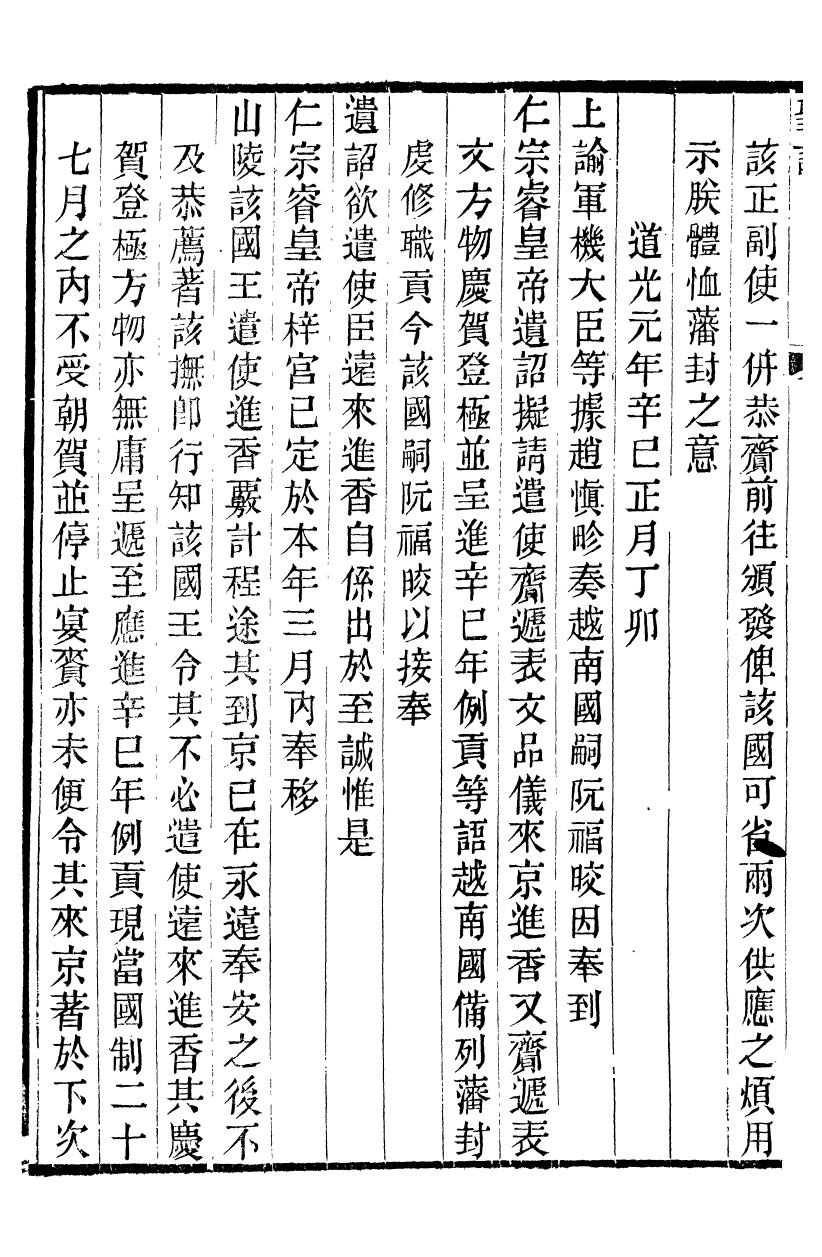 該正副使一併恭齎前往頒發俾該國可省兩次供應之煩用
示朕體恤藩封之意
道光元年辛巳正月丁卯
上諭軍機大臣等據趙愼畛奏越南國嗣阮福晈因奉到
仁宗睿皇帝遺詔擬請遣使齎遞表文品儀來京進香又齎遞表
文方物慶賀登極並呈進辛巳年例貢等語越南國備列藩封
虔修職貢今該國嗣阮福晈以接奉
遺詔欲遣使臣遠來進香自係出於至誠惟是
仁宗睿皇帝梓宮已定於本年三月內奉移
山陵該國王遣使進香覈計程途其到京已在永遠奉安之後不
及恭薦著該撫卽行知該國王令其不必遣使遠來進香其慶
賀登極方物亦無庸呈遞至應進辛巳年例貢現當國制二十
七月之內不受朝賀並停止宴賚亦未便令其來京著於下次